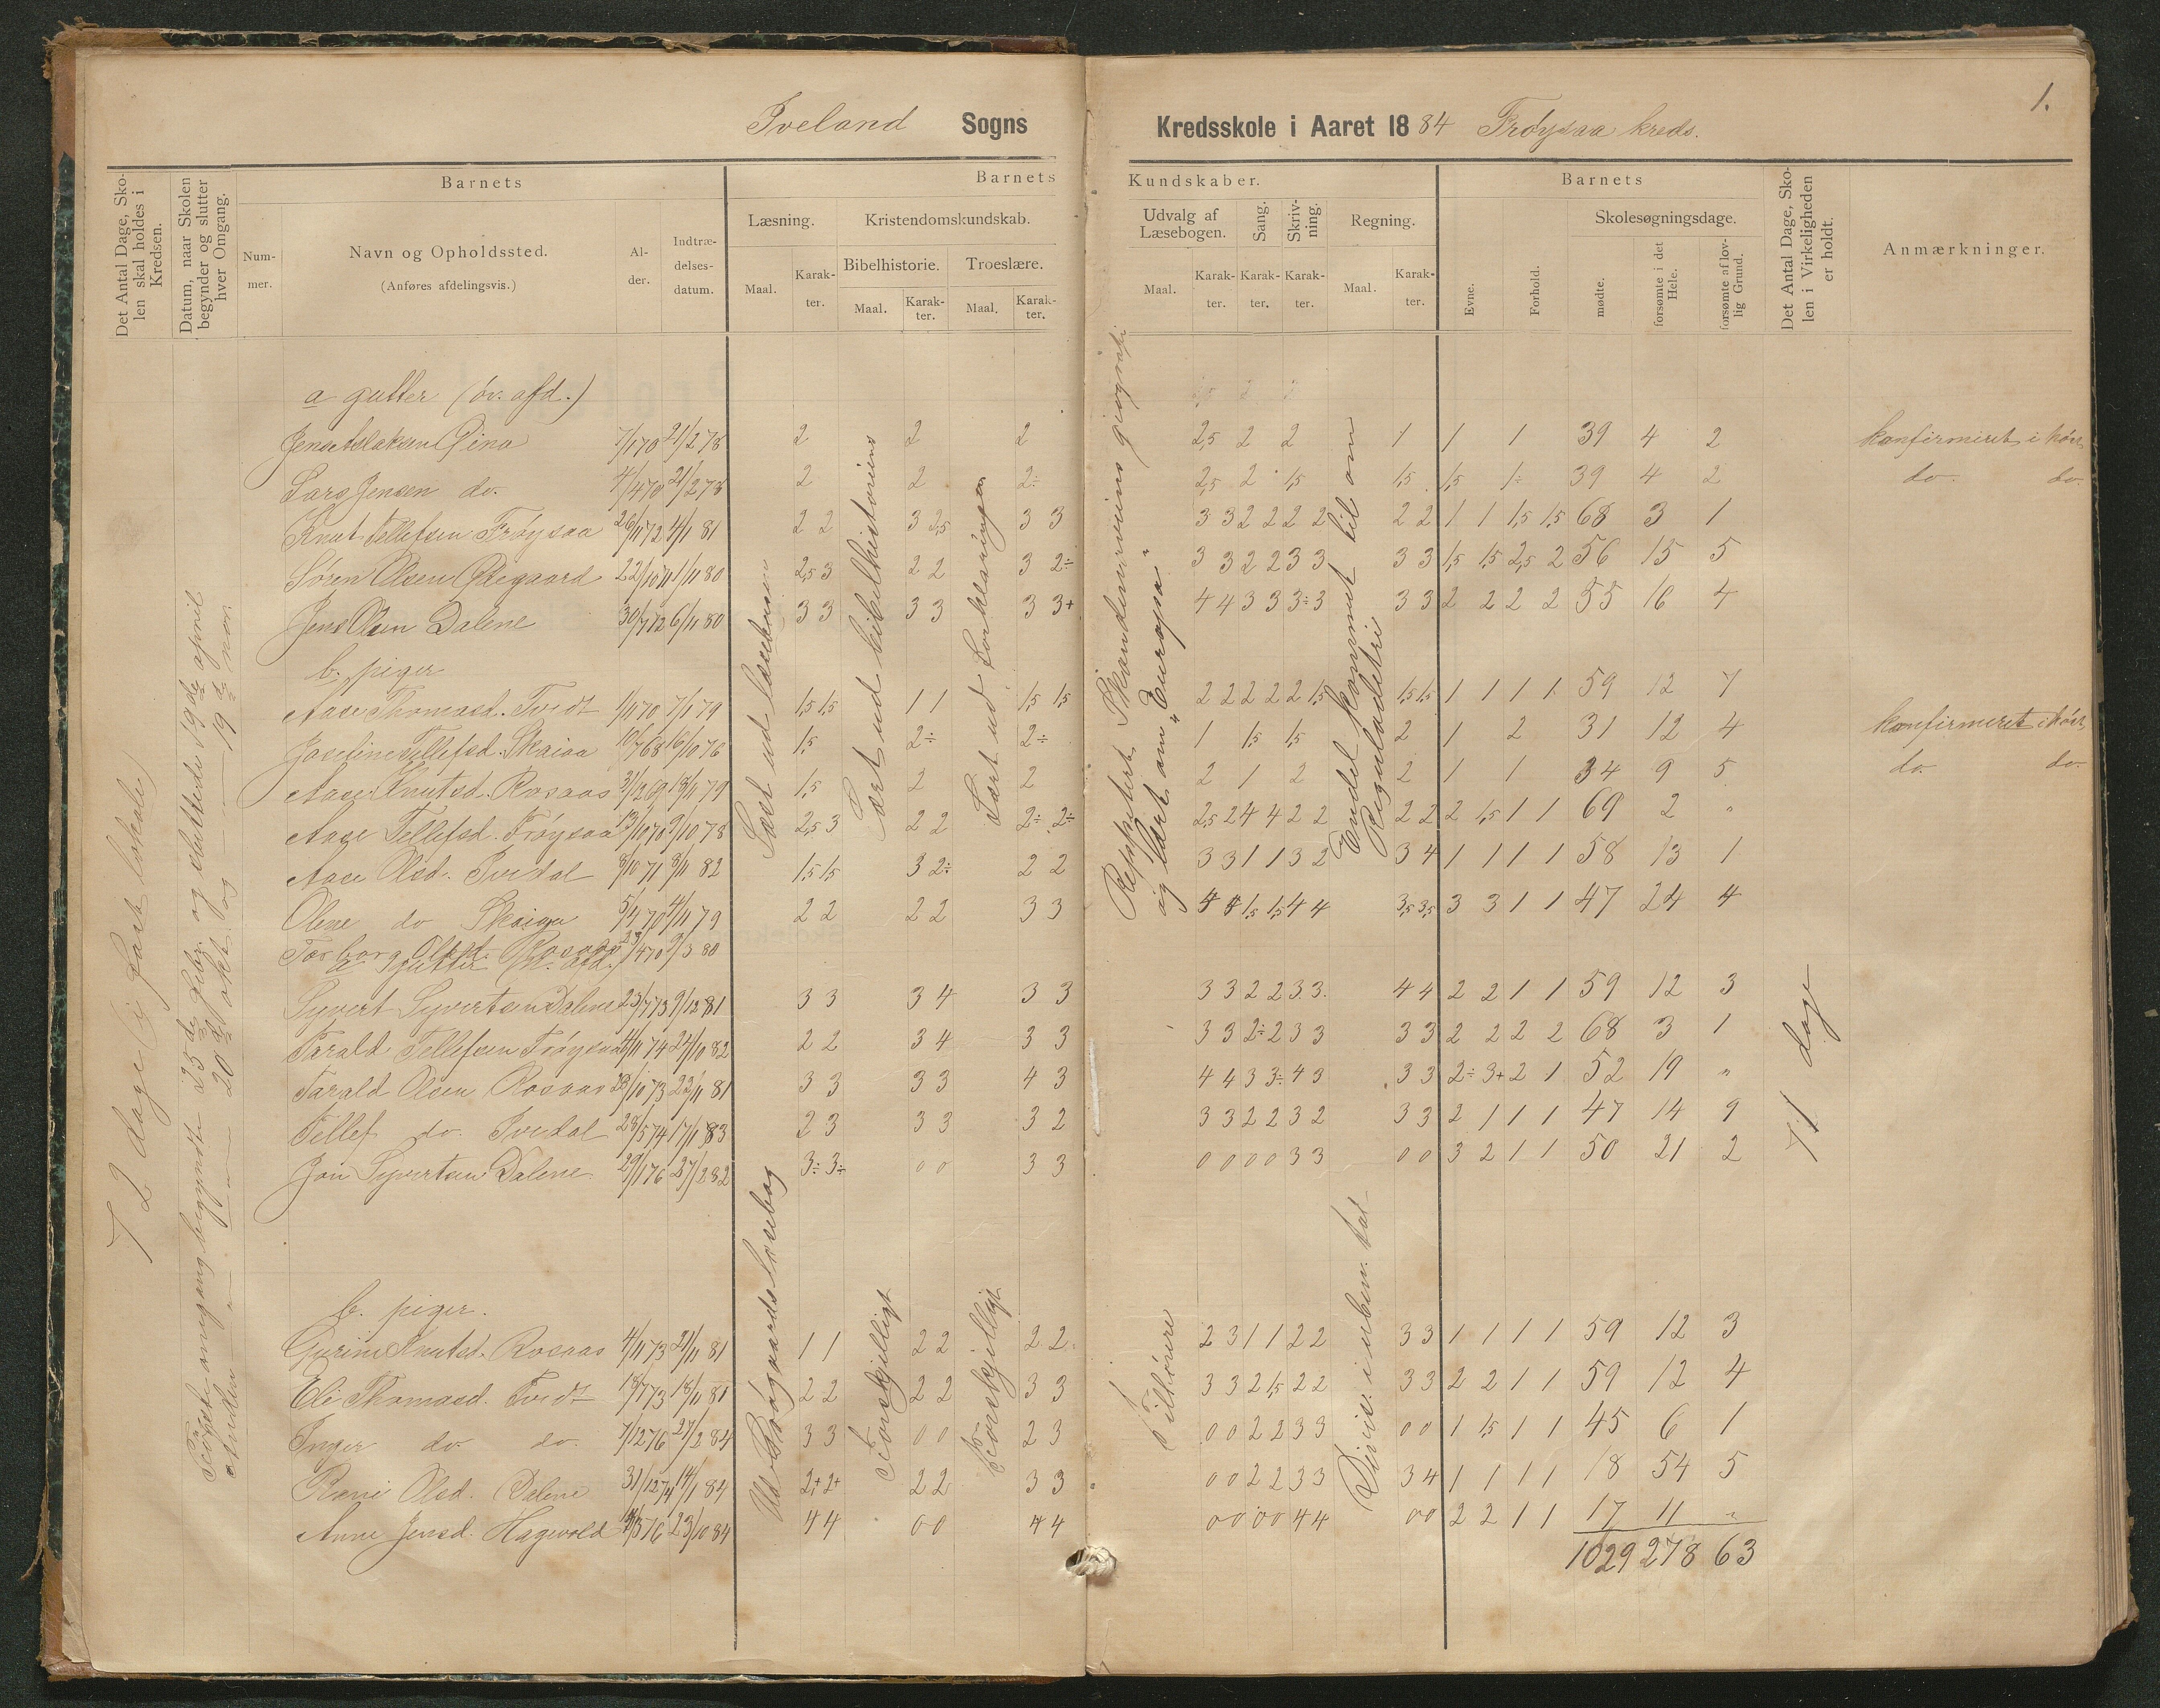 Iveland Sogns Kredsskole i Aaret 1884 Frøysaa kreds.
1.
Det Antal Dage, Skolen skal holdes i Kredsen.
Datum, naar Skolen begynder og slutter hver Omgang.
Barnets
Num-mer.
Navn og Opholdssted.
(Anføres afdelingsvis.)
Al-der.
Indtræ-delses-datum.
Barnets Kundskaber.
Læsning.
Maal.
Karak-ter.
Kristendomskundskab.
Bibelhistorie.
Maal.
Karak-ter.
Troeslære.
Maal.
Karak-ter.
Udvalg af Læsebogen.
Maal.
Karak-ter.
Sang.
Karak-ter.
Skriv-ning.
Karak-ter.
Regning.
Maal.
Karak-ter.
Barnets
Evne.
Forhold.
Skolesøgningsdage.
mødte.
forsømte i det Hele.
forsømte af lov-lig Grund.
Det Antal Dage, Sko-len i Virkeligheden er holdt.
Anmærkninger.
72 dage (i fast lokale)
Første omgang begyndte 25de febr. og sluttede 19de april
Anden — " — 20de okt. og — 19de nov.
Lært ud læsebogen
Lært ud bibelhistorien
Lært ud Forklaringen
Reppetert Skandinaviens geografi
og lært om "Europa"
Endel kommet til om
Reguladetri
71 dage
a gutter (øv. afd.)
Jens Aslaksen Gina 7/1 70 21/2 78 2 2 2 2,5 2 2 1 1 1 39 4 2 konfirmeret i høst
Lars Jensen do. 4/4 70 21/2 78 2 2 2÷ 2,5 2 1,5 1,5 1,5 1÷ 39 4 2 do. do.
Knut Tellefsen Frøysaa 26/11 72 4/1 81 2 2 3 2,5 3 3 3 3 2 2 2 2 2 2 1 1 1,5 1,5 68 3 1
Søren Olsen Ødegaard 22/10 71 1/11 80 2,5 3 2 2 3 2÷ 3 3 2 2 3 3 3 3 1,5 1,5 2,5 2 56 15 5
Jens Olsen Dalene 30/7 72 6/11 80 3 3 3 3 3 3+ 4 4 3 3 3÷ 3 3 3 2 2 2 2 55 16 4
b. piger
Aase Thomasd. Tvedt 1/11 70 7/1 79 1,5 1,5 1 1 1,5 1,5 2 2 2 2 2 1,5 1,5 1,5 1 1 1 1 59 12 7
Josefine Tellefsd. Skaiaa 10/7 68 16/10 76 1,5 2÷ 2÷ 1 1,5 1,5 2 1 2 31 12 4 konfirmeret i høst
Aase Knutsd. Rosaas 31/12 69 18/11 79 1,5 2 2 2 1 2 2 1 1 34 9 5 do. do.
Aase Tellefsd. Frøysaa 13/10 70 9/10 78 2,5 3 2 2 2÷ 2÷ 2,5 2 4 4 2 2 2 2 2 1,5 1 1 69 2 "
Aase Olsd. Ivedal 8/10 71 8/11 82 1,5 1,5 3 2÷ 2 2 3 3 1 1 3 2 3 4 1 1 1 1 58 13 1
Olene do Skaiaa 5/4 70 4/11 79 2 2 2 2 3 3 4 4 1,5 1,5 4 4 3,5 3,5 3 3 1 1 47 24 4
Torborg Olsd. Rosaas 23/4 70 9/3 80
a. Gutter (n. afd.)
Syvert Syvertsen Dalene 23/7 73 9/12 81 3 3 3 4 3 3 3 3 2 2 3 3 4 4 2 2 1 1 59 12 3
Tarald Tellefsen Frøysaa 4/11 74 24/10 82 2 2 3 4 3 3 3 3 2÷ 2 3 3 3 3 2 2 2 2 68 3 1
Tarald Olsen Rosaas 28/10 73 22/11 81 3 3 3 3 4 3 4 4 3 3÷ 4 3 3 3 2÷ 3+ 2 1 52 19 "
Tellef do. Ivedal 28/5 74 17/1 83 2 3 3 3 3 2 3 3 2 2 3 2 3 3 2 1 1 1 47 14 9
Jon Syvertsen Dalene 29/1 76 27/2 82 3÷ 3÷ 0 0 3 3 0 0 0 0 3 3 0 0 3 2 1 1 50 21 2
Ud Brøgaards Læsebog
Forskjelligt
Forskjelligt
Tilhørere
Divis. i uben. tal
b. piger.
Gurine Knutsd. Rosaas 4/11 73 21/11 81 1 1 2 2 2 2 2 3 1 1 2 2 3 3 1 1 1 1 59 12 3
Eli Thomasd. Tvedt 18/7 73 18/11 81 2 2 2 2 3 3 3 3 2 1,5 2 2 3 3 2 2 1 1 59 12 4
Inger do do. 7/12 76 27/2 84 3 3 0 0 2 3 0 0 2 2 3 3 0 0 1 1,5 1 1 45 6 1
Rani Olsd. Dalene 31/12 74 14/1 84 2+ 2+ 2 2 3 3 0 0 2 2 3 3 3 4 1 1 1 1 18 54 5
Anne Jensd. Hagevold 23/10 84 4 4 0 0 4 4 0 0 0 0 4 4 0 0 2 2 1 1 17 11 "
1029 278 63